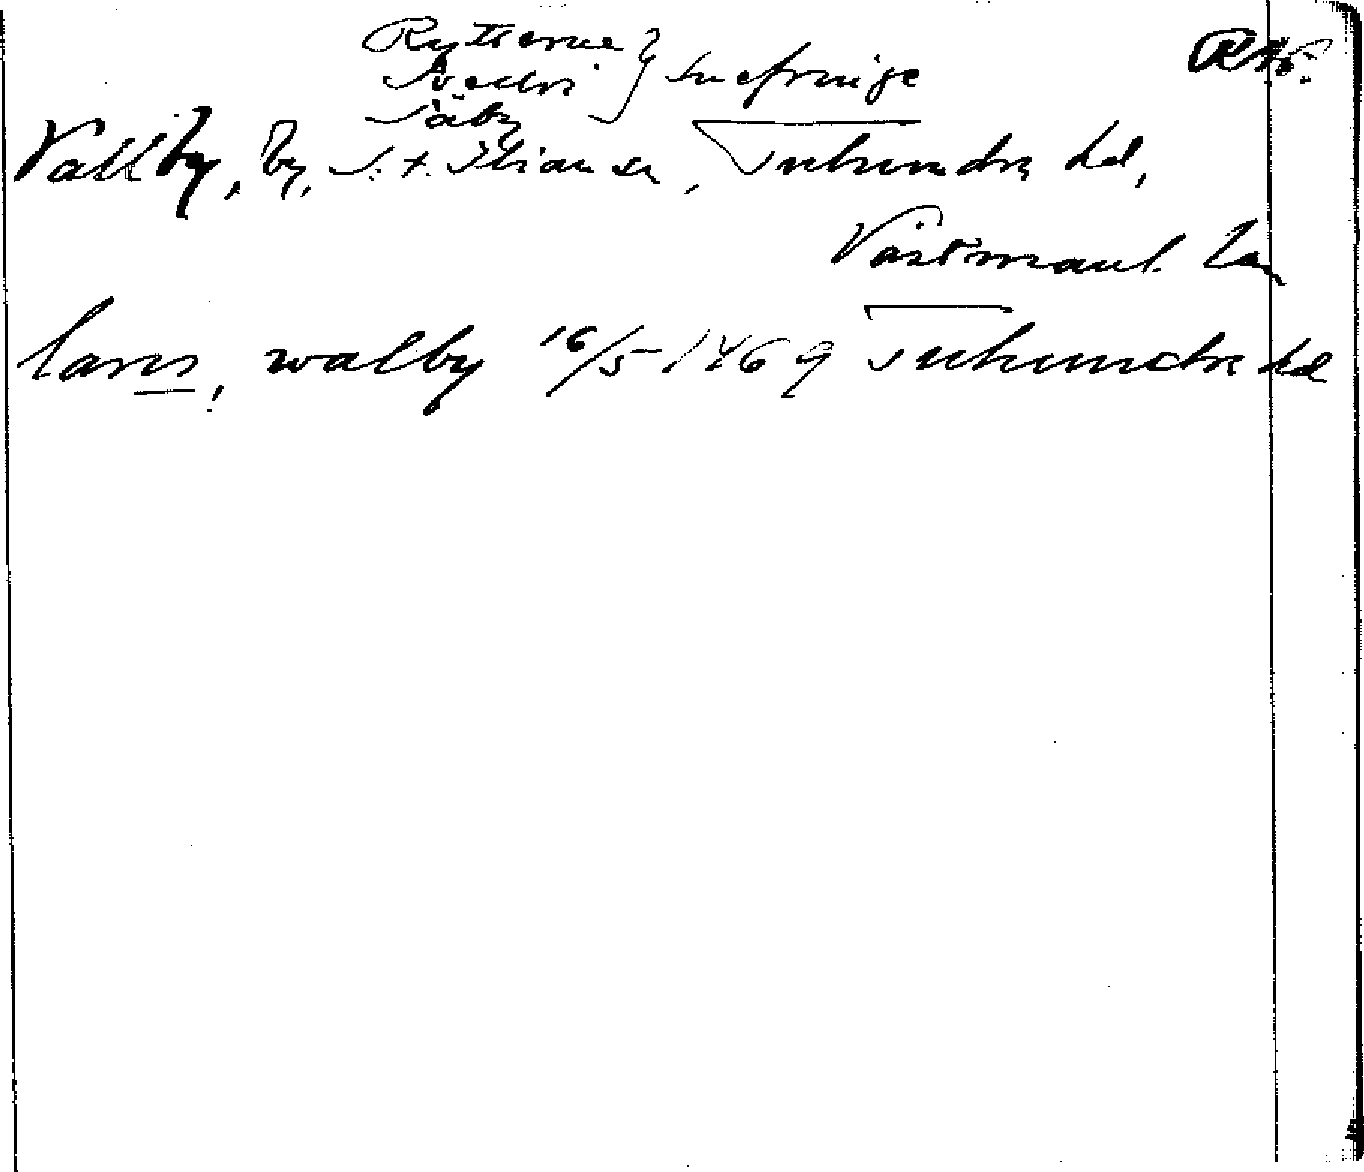 Rytterne
Svedvi } Snefringe
Säby
Vallby, by, S:t Ilians sn, Tuhundra hd,
Västmanl. län
lares, walby 16/5 1469 Tuhundra hd